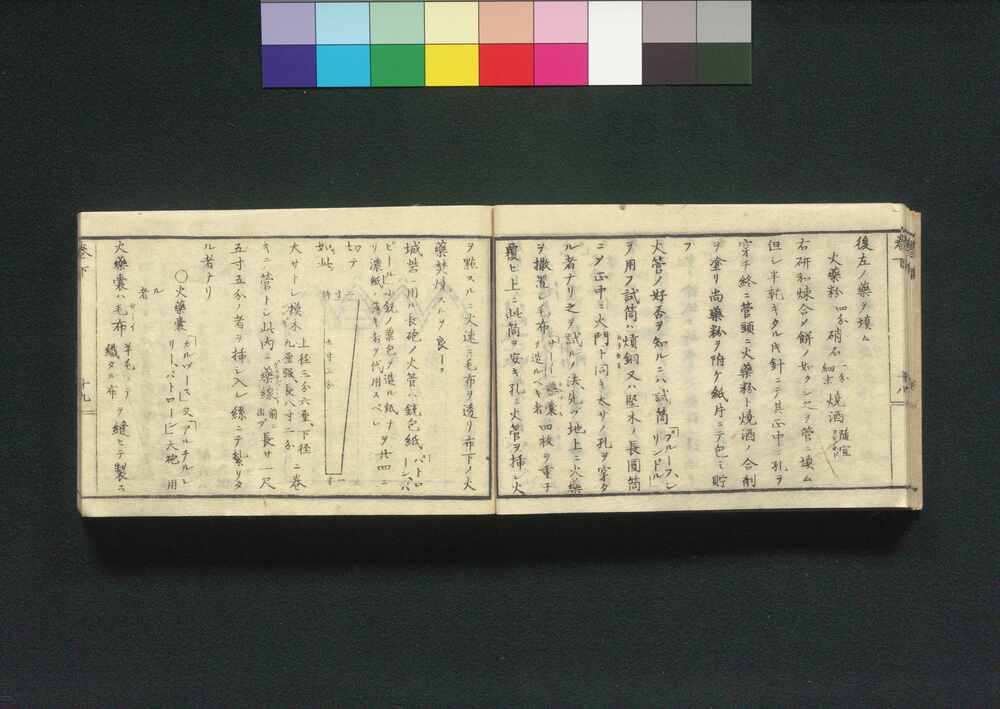 後左ノ藥ヲ填ム
火藥粉 四分 硝石 一分 細末 燒酒 隨宜
右研和煉合メ餅ノ如クシ之ヲ管ニ填ム
但シ半乾キタル時針ニテ其正中ニ孔ヲ
穿チ終ニ管頭ニ火藥粉ト燒酒ノ合劑
ヲ塗リ尚藥粉ヲ附ケ紙片ニテ包ミ貯
フ
火管ノ好否ヲ知ルニハ試筒「プルーフシリンドル」
ヲ用フ試筒ハ熕銅又ハ堅木ノ長圓筒
ニメ正中ニ火門ト同キ太サノ孔ヲ穿タ
ル者ナリ之ヲ試ルノ法先ヅ地上ニ火藥
ヲ撒置シ毛布 ヲ造ルベキ者 四枚ヲ重子
覆ヒ上ニ此筒ヲ安キ孔ニ火管ヲ挿シ火
ヲ點スルニ火速ニ毛布ヲ透リ布下ノ火
藥焚燒スルヲ良トス
城砦ニ用ル長砲ノ火管ハ銃包紙
リ濃紙ノ薄キ者ヲ代用スベシ
切テ
如此
大サトシ模木 上徑三分六重、下徑二分九重強長八寸二分 ニ卷
キ管トシ此内ニ藥線 前ニ出ヅ 長サ一尺
五寸五分ノ者ヲ挿シ入レ絲ニテ紮リタ
ル者ナリ
〇火藥囊 「カルヅース」又「アルチルレリーパトローン」大砲ニ用ル者
火藥囊ハ毛布 羊毛ニテ織タル布 ヲ縫ヒテ製ス
卷下
十九